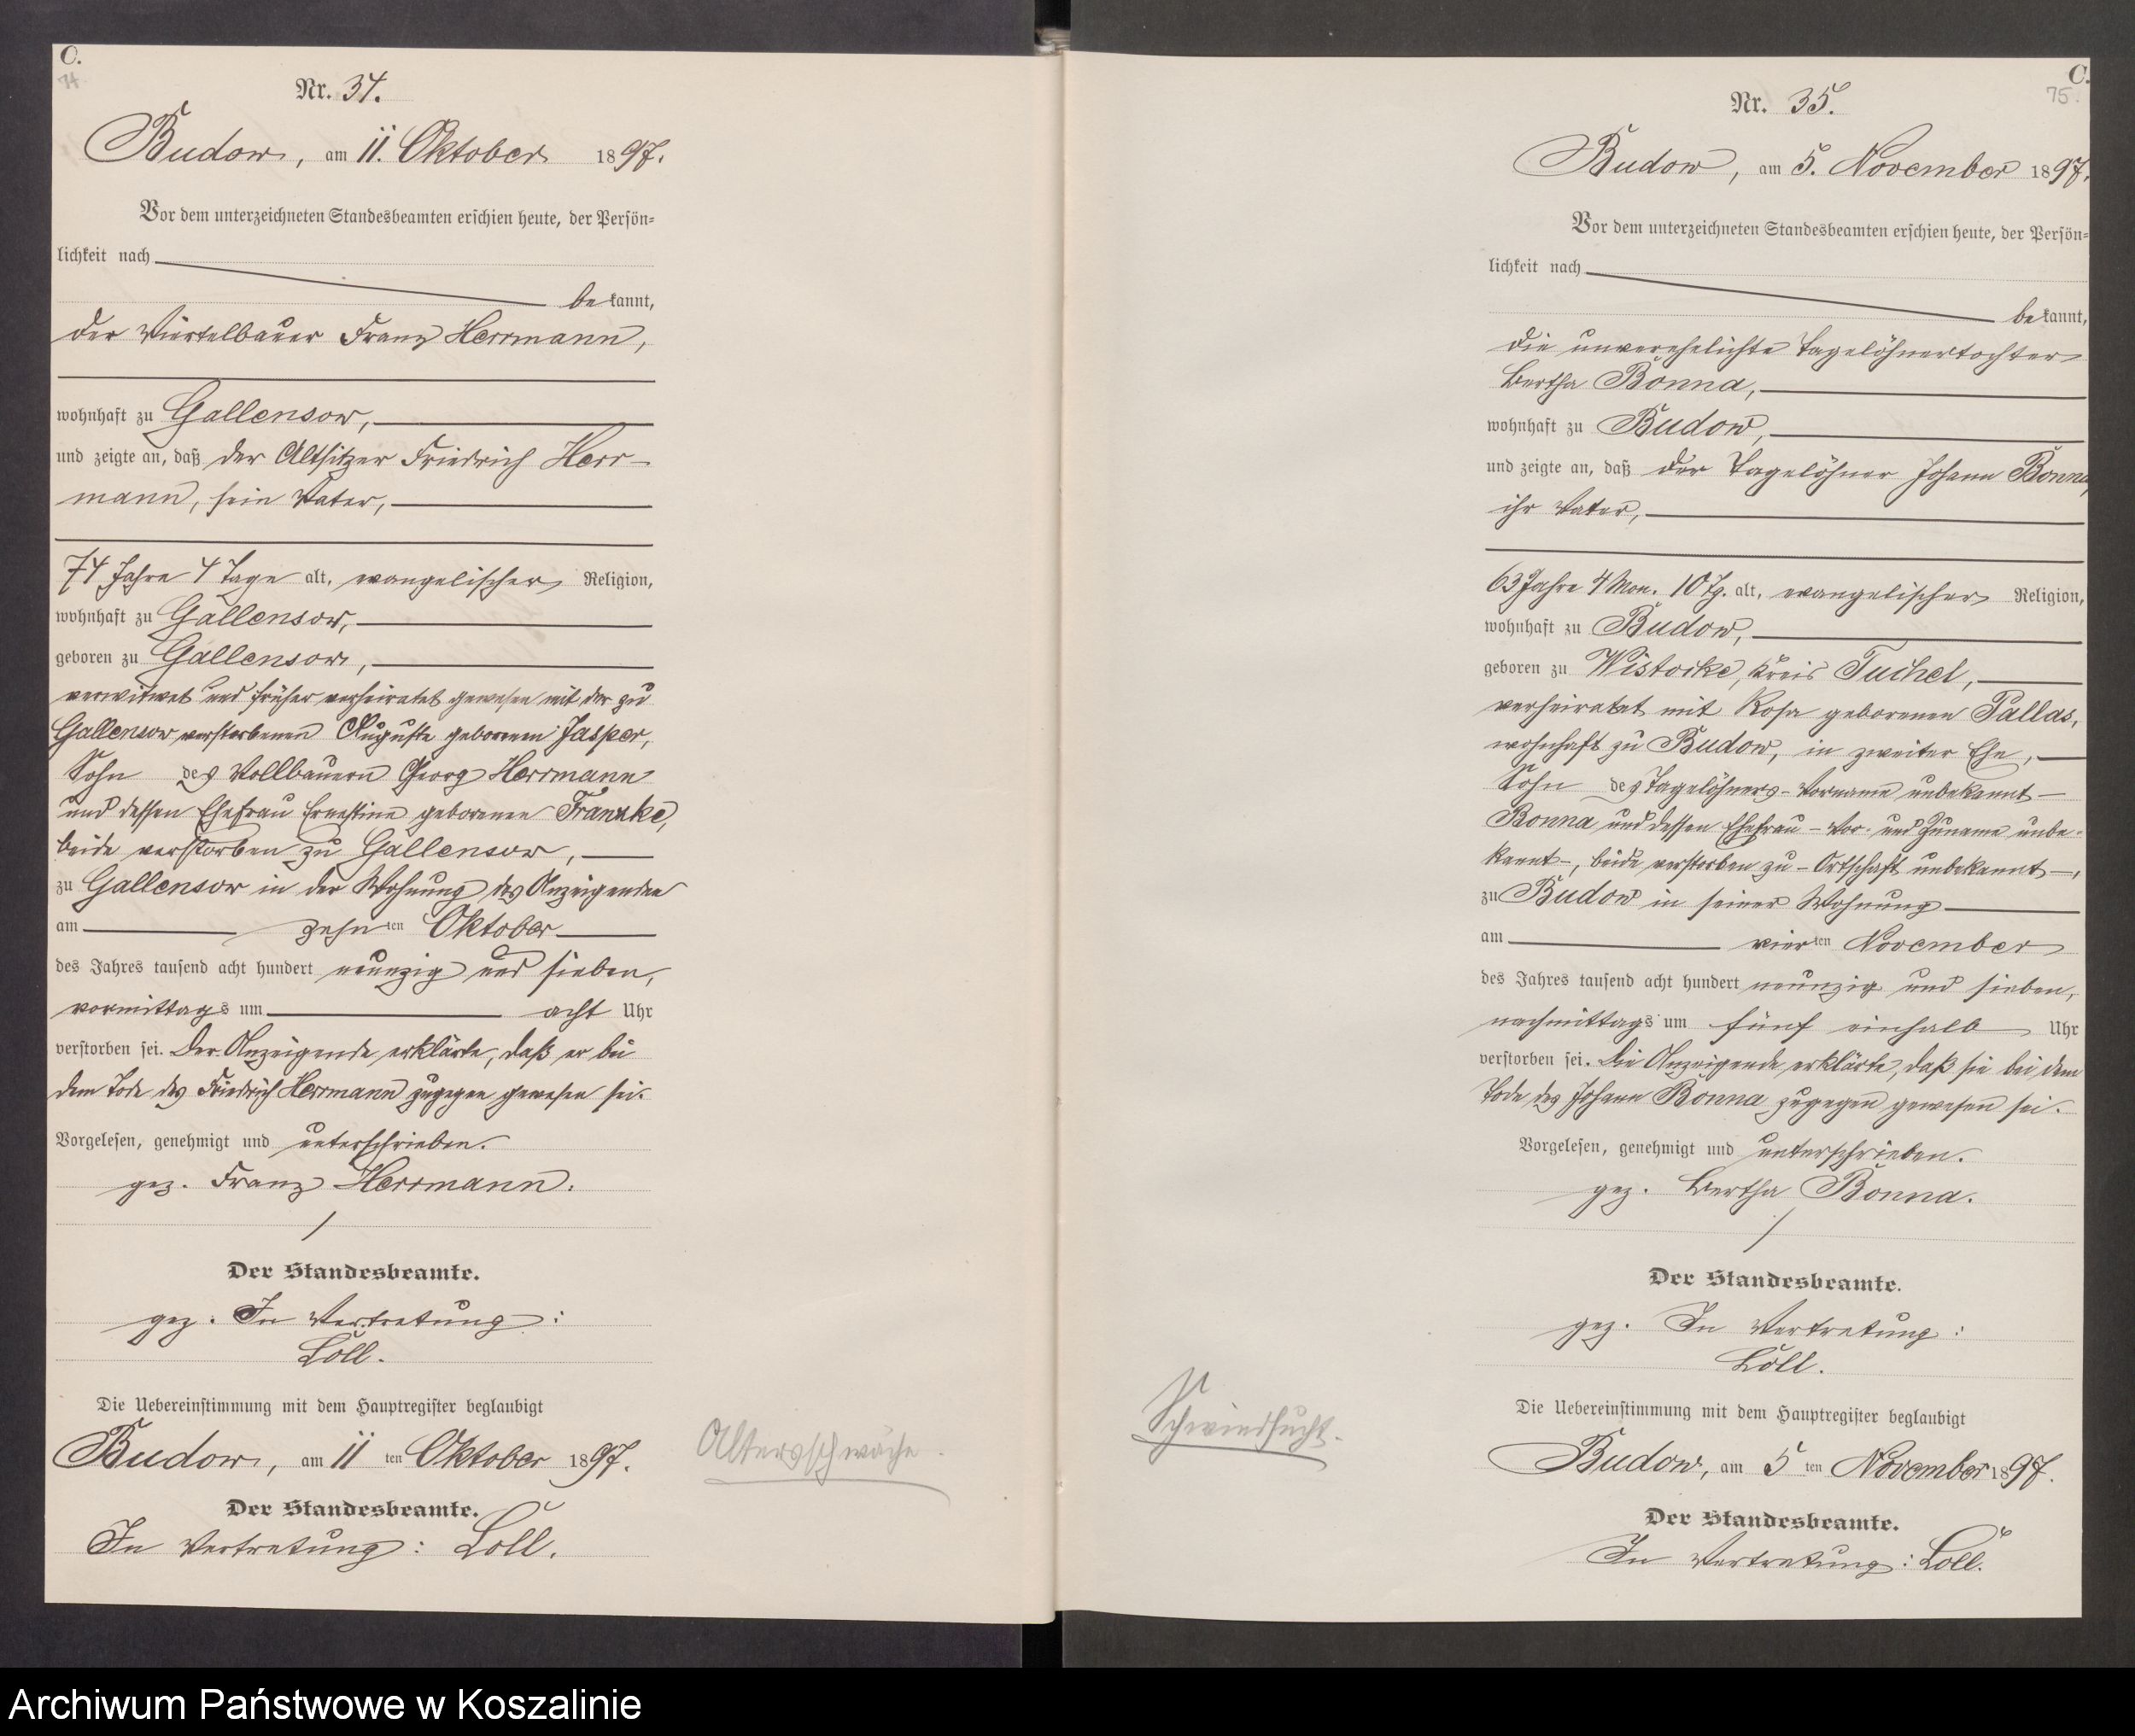 C.
74.
Nr. 34.
Budow, am 11. Oktober 1897.
Vor dem unterzeichneten Standesbeamten erschien heute, der Persön=
lichkeit nach
bekannt,
der Viertelbauer Franz Herrmann,
wohnhaft zu Gallensow,
und zeigte an, daß der Altsitzer Friedrich Herr-
mann, sein Vater,
74 Jahre 4 Tage alt, evangelischer Religion,
wohnhaft zu Gallensow,
geboren zu Gallensow,
verwitwet und früher verheiratet gewesen mit der zu
Gallensow verstorbenen Auguste geborenen Jasper,
Sohn des Vollbauern Georg Herrmann
und dessen Ehefrau Ernestine geborenen Franzke,
beide verstorben zu Gallensow,
zu Gallensow in der Wohnung des Anzeigenden
am zehnten Oktober
des Jahres tausend acht hundert neunzig und sieben,
vormittags um acht Uhr
verstorben sei. Der Anzeigende erklärte, daß er bei
dem Tode des Friedrich Herrmann zugegen gewesen sei.
Vorgelesen, genehmigt und unterschrieben.
gez. Franz Herrmann.
Der Standesbeamte.
gez. In Vertretung:
Loll.
Die Uebereinstimmung mit dem Hauptregister beglaubigt
Budow, am 11 ten Oktober 1897.
Der Standesbeamte.
In Vertretung: Loll.
Altersschwäche.
C.
75.
Nr. 35.
Budow, am 5. November 1897.
Vor dem unterzeichneten Standesbeamten erschien heute, der Persön=
lichkeit nach
bekannt,
die unverehelichte Tagelöhnertochter
Bertha Bonna,
wohnhaft zu Budow,
und zeigte an, daß der Tagelöhner Johann Bonna,
ihr Vater,
63 Jahre 4 Mon. 10 Tg. alt, evangelischer Religion,
wohnhaft zu Budow,
geboren zu Wistocke, Kreis Tuchel,
verheiratet mit Rosa geborenen Pallas,
wohnhaft zu Budow, in zweiter Ehe,
Sohn des Tagelöhners - Vorname unbekannt -
Bonna und dessen Ehefrau - Vor- und Zuname unbe-
kannt -, beide verstorben zu - Ortschaft unbekannt -,
zu Budow in seiner Wohnung
am vierten November
des Jahres tausend acht hundert neunzig und sieben,
nachmittags um fünf einhalb Uhr
verstorben sei. Die Anzeigende erklärte, daß sie bei dem
Tode des Johann Bonna zugegen gewesen sei.
Vorgelesen, genehmigt und unterschrieben.
gez. Bertha Bonna.
Der Standesbeamte.
gez. In Vertretung:
Loll.
Die Uebereinstimmung mit dem Hauptregister beglaubigt
Budow, am 5 ten November 1897.
Der Standesbeamte.
In Vertretung: Loll.
Schwindsucht.
Archiwum Państwowe w Koszalinie